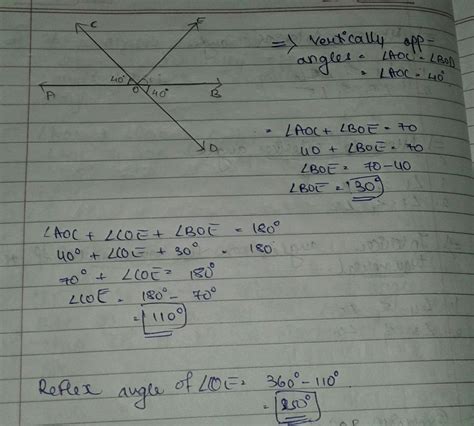 C E
40°
A O 40° B
D
=> Vertically opp-
angles = ∠AOC = ∠BOD
= ∠AOC = 40°
= ∠AOC + ∠BOE = 70
40 + ∠BOE = 70
∠BOE = 70-40
∠BOE = 30°
∠AOC + ∠COE + ∠BOE = 180°
40° + ∠COE + 30° = 180
70° + ∠COE = 180°
∠COE = 180° - 70°
= 110°
Reflex angle of ∠COE = 360° - 110°
= 250°